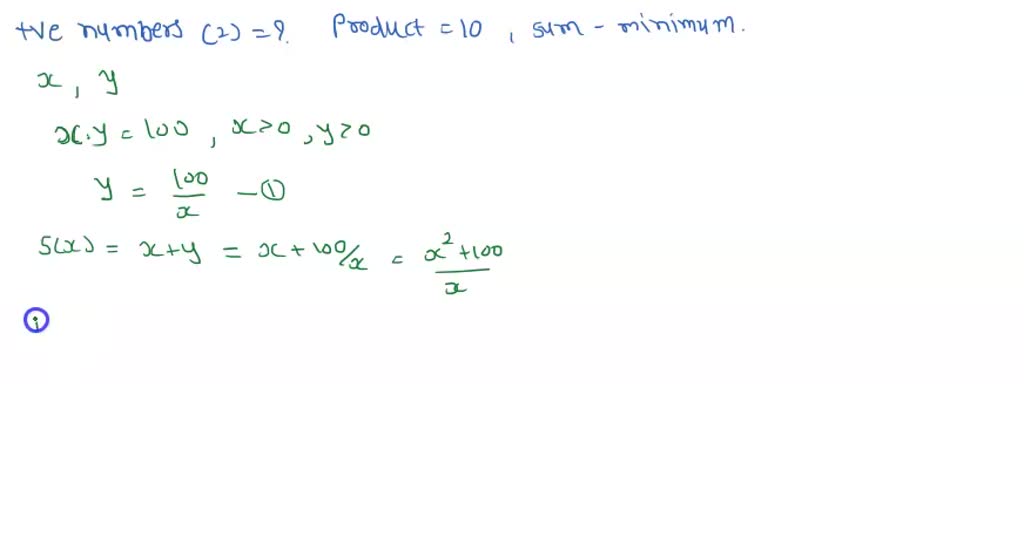 +ve numbers (2) = ?. Product = 10 , sum - minimum.
x , y
x.y = 100 , x>0 , y>0
y = 100/x - ①
S(x) = x+y = x + 100/x = x²+100/x